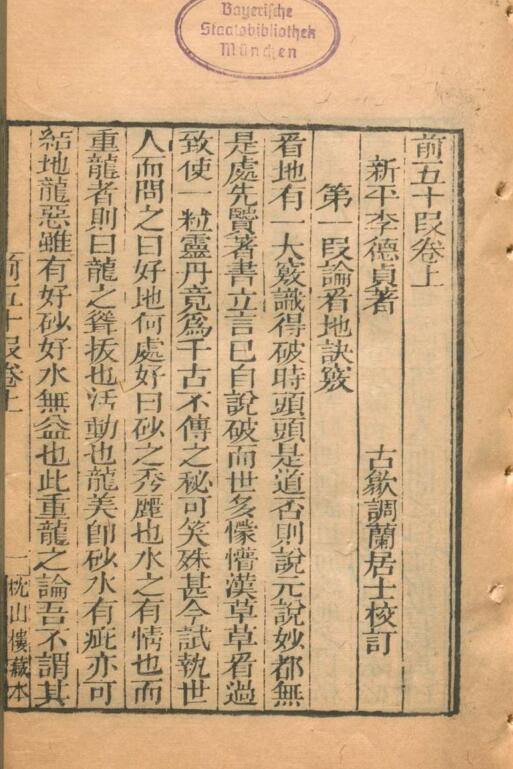 Bayerische
Staatsbibliothek
München
前五十段卷上
新平李德貞著 古歙調蘭居士校訂
第一段論看地訣竅
看地有一大竅識得破時頭頭是道否則說元說妙都無
是處先賢著書立言已自說破而世多懞懵漢草草看過
致使一粒靈丹竟爲千古不傳之秘可笑殊甚今試執世
人而問之曰好地何處好曰砂之秀麗也水之有情也而
重龍者則曰龍之聳拔也活動也龍美卽砂水有疵亦可
結地龍惡雖有好砂好水無益也此重龍之論吾不謂其
前五十段卷上 一 枕山樓藏本